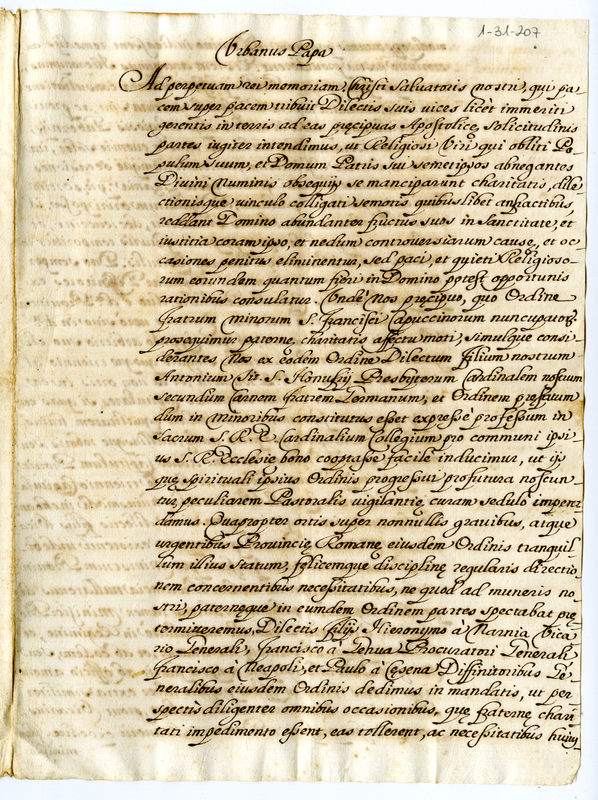 1-31-207
Urbanus Papa
Ad perpetuam rei memoriam, Christi Salvatoris nostri, qui pa
cem super pacem tribuit Dilectis suis vices licèt immeriti
gerentis in terris ad eas pręcipuas Apostolicę solicitudinis
partes iugiter intendimus, ut Religiosi Viri qui obliti Po
pulum suum, et Domum Patris sui semetipsos abnegantes
Divini Numinis obsequijs se manciparunt charitatis, dile
ctionisque vinculo colligati semotis quibuslibet anfractibus
reddant Domino abundanter fructus suos in Sanctitate, et
iustitia coram ipso, et nedum controversiarum causę, et oc
casiones penitus eliminentur, sed paci, et quieti Religioso-
rum eorundem quantum fieri in Domino potest opportunis
rationibus consulatur. Unde Nos pręcipuo, quo Ordinem
fratrum minorum S. Francisci Capuccinorum nuncupatorꝝ
prosequimur paternę charitatis affectu moti, simulque consi-
derantes Nos ex eodem Ordine Dilectum filium nostrum
Antonium tit. S. Honufrij Presbyterum Cardinalem nostrum
secundum Carnem fratrem Germanum, et Ordinem pręfatum
dum in Minoribus constitutus esset expressè professum in
Sacrum S. R. E. Cardinalium Collegium pro communi ipsi-
us S. R. Ecclesię bono cooptasse facilè inducimur, ut ijs
quę spirituali ipsius Ordinis progressui profutura noscun-
tur peculiarem Pastoralis vigilantię curam sedulò impen
damus. Quapropter ortis super nonnullis gravibus, atque
urgentibus Provincię Romanę eiusdem Ordinis tranquil
lum illius statum, fęlicemque disciplinę regularis directio-
nem concernentibus necessitatibus, ne quod ad muneris no-
stri, paternęque in eumdem Ordinem partes spectabat prę
termitteremus, Dilectis filijs Hieronymo à Narnia Vica
rio Generali, Francisco à Genua Procuratori Generali
Francisco à Neapoli, et Paulo à Cesena Diffinitoribus Ge-
neralibus eiusdem Ordinis dedimus in mandatis, ut per
spectis diligenter omnibus occasionibus, quę fraternę chari
tati impedimento essent, eas tollerent, ac necessitatibus huius